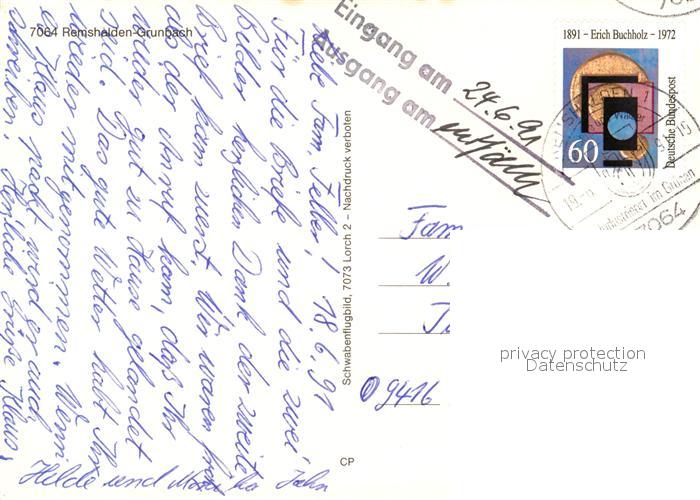 7064 Remshalden-Grunbach
Liebe Fam. Feller! 18.6.91
Für die Briefe und die zwei
Bilder herzlichen Dank der zweite
Brief kam zuerst. Wir waren froh
als der Anruf kam, daß Ihr
wieder gut zu Hause gelandet
seid. Das gute Wetter habt Ihr
wieder mitgenommen. Wenn
Klaus macht wird er auch
schreiben. Herzliche Grüße Klaus,
Helde und John
Schwabenflugbild, 7073 Lorch 2 – Nachdruck verboten
CP
Eingang am 24.6.91
Ausgang am
1891 – Erich Buchholz – 1972
60
Deutsche Bundespost
im Grünen
7064
Fam
W.
9416
privacy protection
Datenschutz